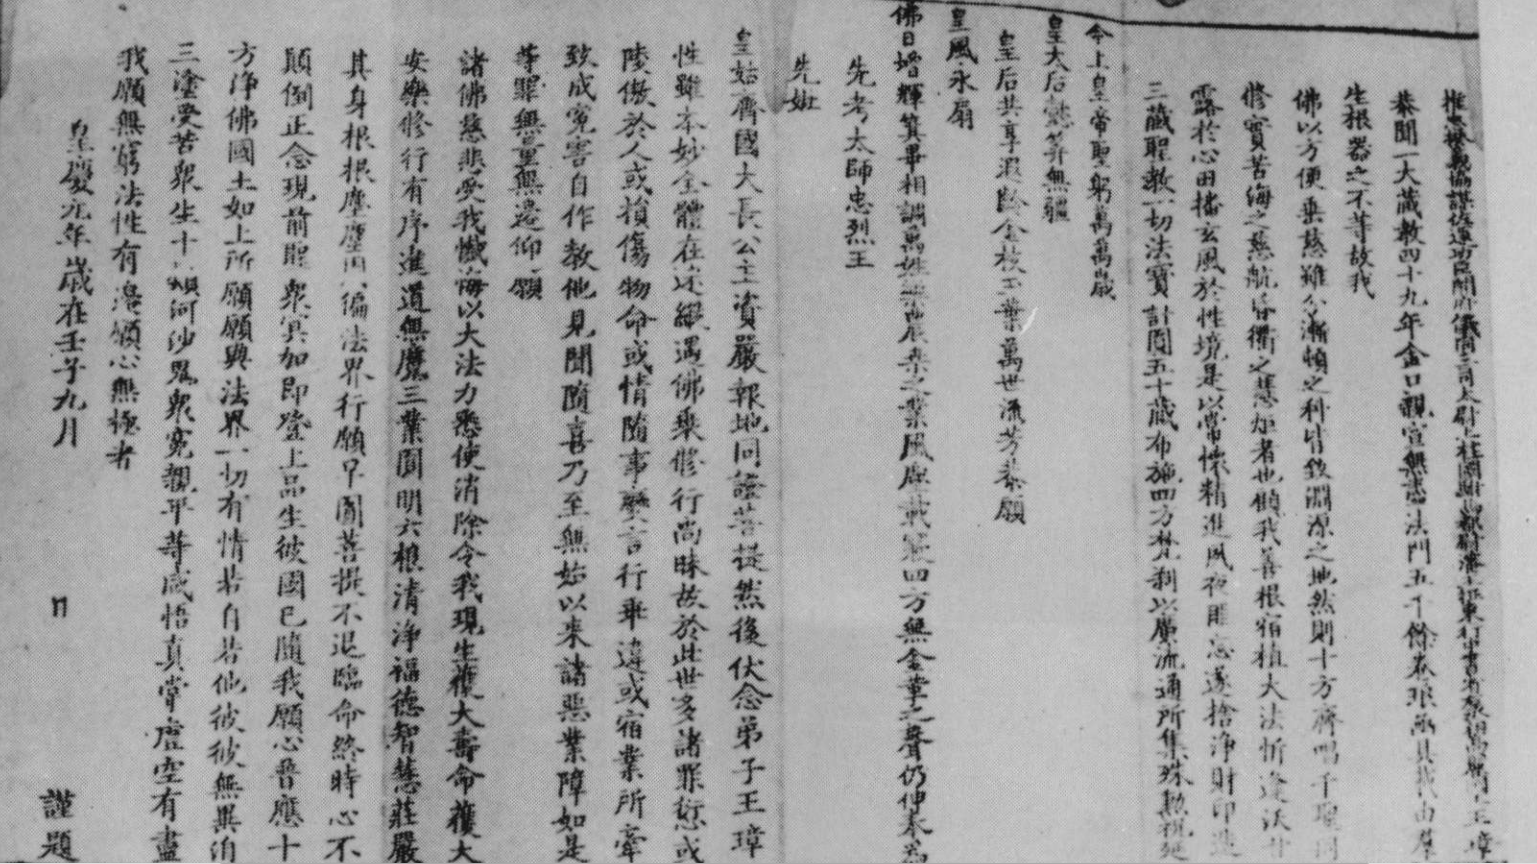 推忠揆義協謀佐運功臣開府儀同三司太尉上柱國駙馬都尉瀋王征東行中書省王璋
恭聞一大藏教四十九年金口親宣無量法門五千餘卷琅函具載由羣
生根器之不等故我
佛以方便垂慈雖分漸頓之科皆致淵源之地然則十方齊唱千聖同
修實苦海之慈航昏衢之慧炬者也顧我善根宿植大法忻逢沃甘
露於心田播玄風於性境是以常懷精進夙夜匪忘遂捨淨財印造
三藏聖教一切法寶計圓五十藏布施四方梵剎以廣流通所集殊勲祝延
今上皇帝聖躬萬萬歲
皇太后懿筭無疆
皇后共享遐齡金枝玉葉萬世流芳恭願
皇風永扇
佛日增輝箕畢相調萬姓無農桑之業風塵載寧四方無金革之聲仍伸奉為
先考太師忠烈王
先妣
皇姑齊國大長公主資嚴報地同證菩提然後伏念弟子王璋
性雖本妙全體在迷纔遇佛乘修行尚昧故於此世多諸罪愆或
陵傲於人或損傷物命或情隨事變言行乖違或宿業所牽
致成寃害自作教他見聞隨喜乃至無始以來諸惡業障如是
等罪無量無邊仰願
諸佛慈悲受我懺悔以大法力悉使消除令我現生獲大壽命獲大
安樂修行有序進道無魔三業圓明六根清淨福德智慧莊嚴
其身根根塵塵周徧法界行願早圓菩提不退臨命終時心不
顛倒正念現前聖衆冥加即登上品生彼國已隨我願心普應十
方淨佛國土如上所願願與法界一切有情若自若他彼彼無異洎
三塗受苦衆生十類河沙鬼衆寃親平等咸悟真常虛空有盡
我願無窮法性有邊願心無極者
皇慶元年歲在壬子九月 日 謹題